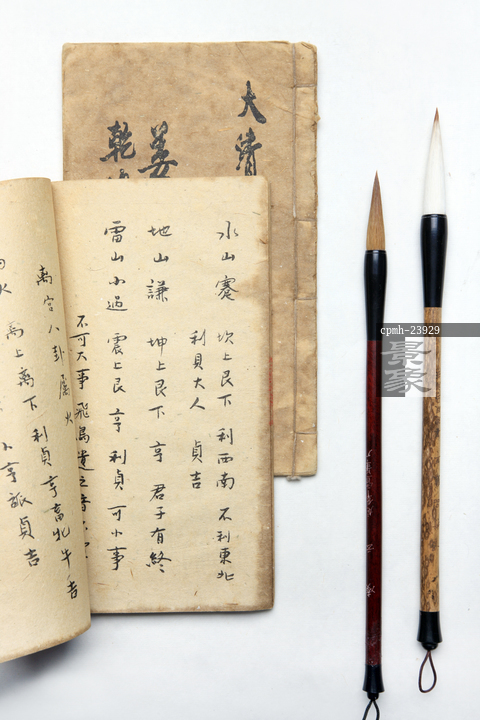 大清
姜
乾
水山蹇 坎上艮下 利西南 不利東北
利貝大人 貞吉
地山謙 坤上艮下 亨 君子有終
雷山小過 震上艮 亨 利貞 可小事
不可大事 飛鳥遺之音
离宮八卦 屬火
离上离下 利貞 亨畜牝牛 吉
小亨 旅貞吉
cpmh-23929
景象